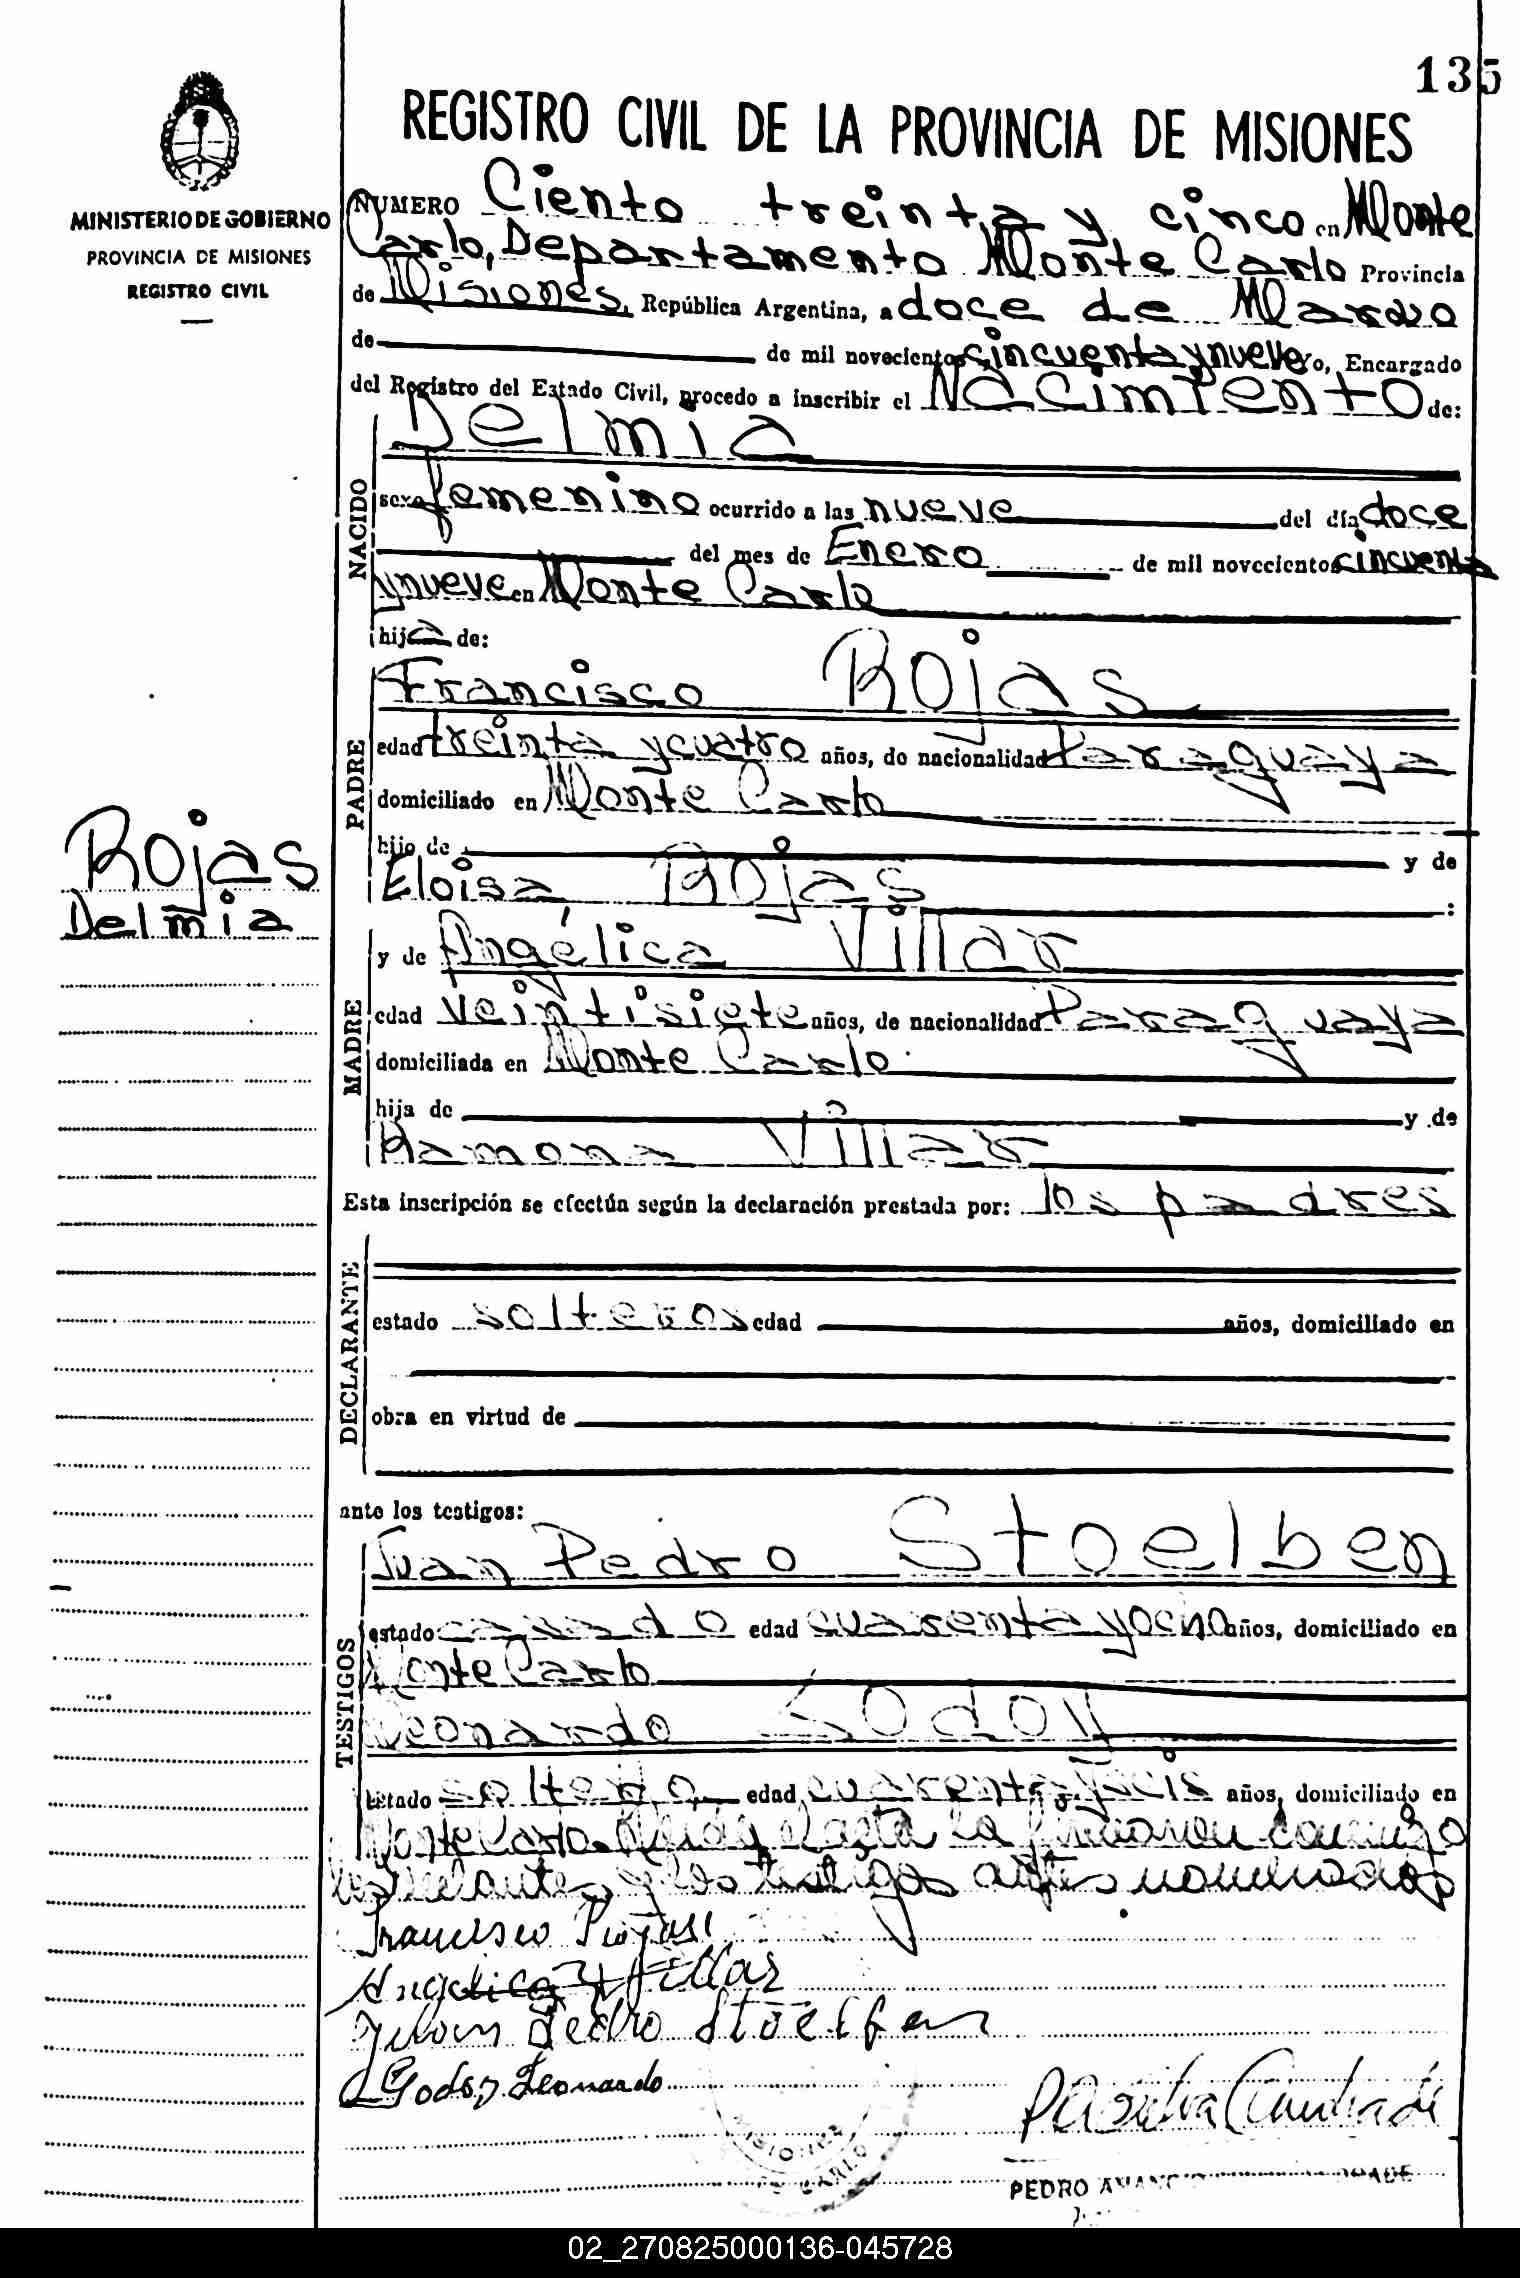 135
REGISTRO CIVIL DE LA PROVINCIA DE MISIONES
MINISTERIO DE GOBIERNO
PROVINCIA DE MISIONES
REGISTRO CIVIL
NUMERO Ciento treinta y cinco en Monte
Carlo, Departamento Monte Carlo Provincia
de Misiones, República Argentina, a doce de Marzo
de de mil novecientos cincuenta y nueve Yo, Encargado
del Registro del Estado Civil, procedo a inscribir el Nacimiento de:
NACIDO
Delmia
sexo femenino ocurrido a las nueve del día doce
del mes de Enero de mil novecientos cincuenta
y nueve en Monte Carlo
hija de:
PADRE
Francisco Rojas
edad treinta y cuatro años, de nacionalidad Paraguaya
domiciliado en Monte Carlo
hijo de y de
Eloisa Rojas :
Rojas
Delmia
MADRE
y de Angélica Villar
edad veintisiete años, de nacionalidad Paraguaya
domiciliada en Monte Carlo
hija de y de
Ramona Villar
Esta inscripción se efectúa según la declaración prestada por: los padres
DECLARANTE
estado solteros edad años, domiciliado en
obra en virtud de
ante los testigos:
TESTIGOS
Juan Pedro Stoelben
estado casado edad cuarenta y ocho años, domiciliado en
Monte Carlo
Leonardo Godoy
estado soltero edad cuarenta y seis años, domiciliado en
Monte Carlo. Leida el acta la firmaron conmigo
los y los testigos antes nombrados
Francisco Rojas
Angelica Villar
Pedro Stoelben
Godoy Leonardo
MISIONES
CARLO
PEDRO
02_270825000136-045728